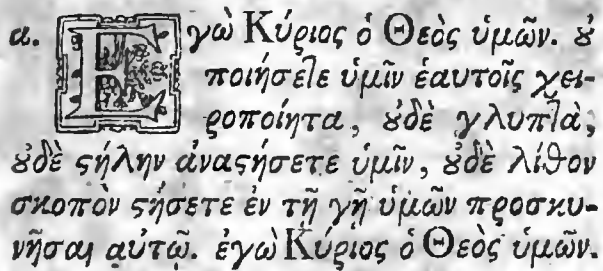 α. Εγὼ Κύριος ὁ Θεὸς ὑμῶν. ȣ̓
ποιήσετε ὑμῖν ἑαυτοῖς χει-
ροποίητα, ȣ̓δὲ γλυπτὰ,
ȣ̓δὲ ϛήλην ἀναϛήσετε ὑμῖν, ȣ̓δὲ λίθον
σκοπὸν ϛήσετε ἐν τῇ γῇ ὑμῶν προσκυ-
νῆσαι αὐτῷ. ἐγὼ Κύριος ὁ Θεὸς ὑμῶν.